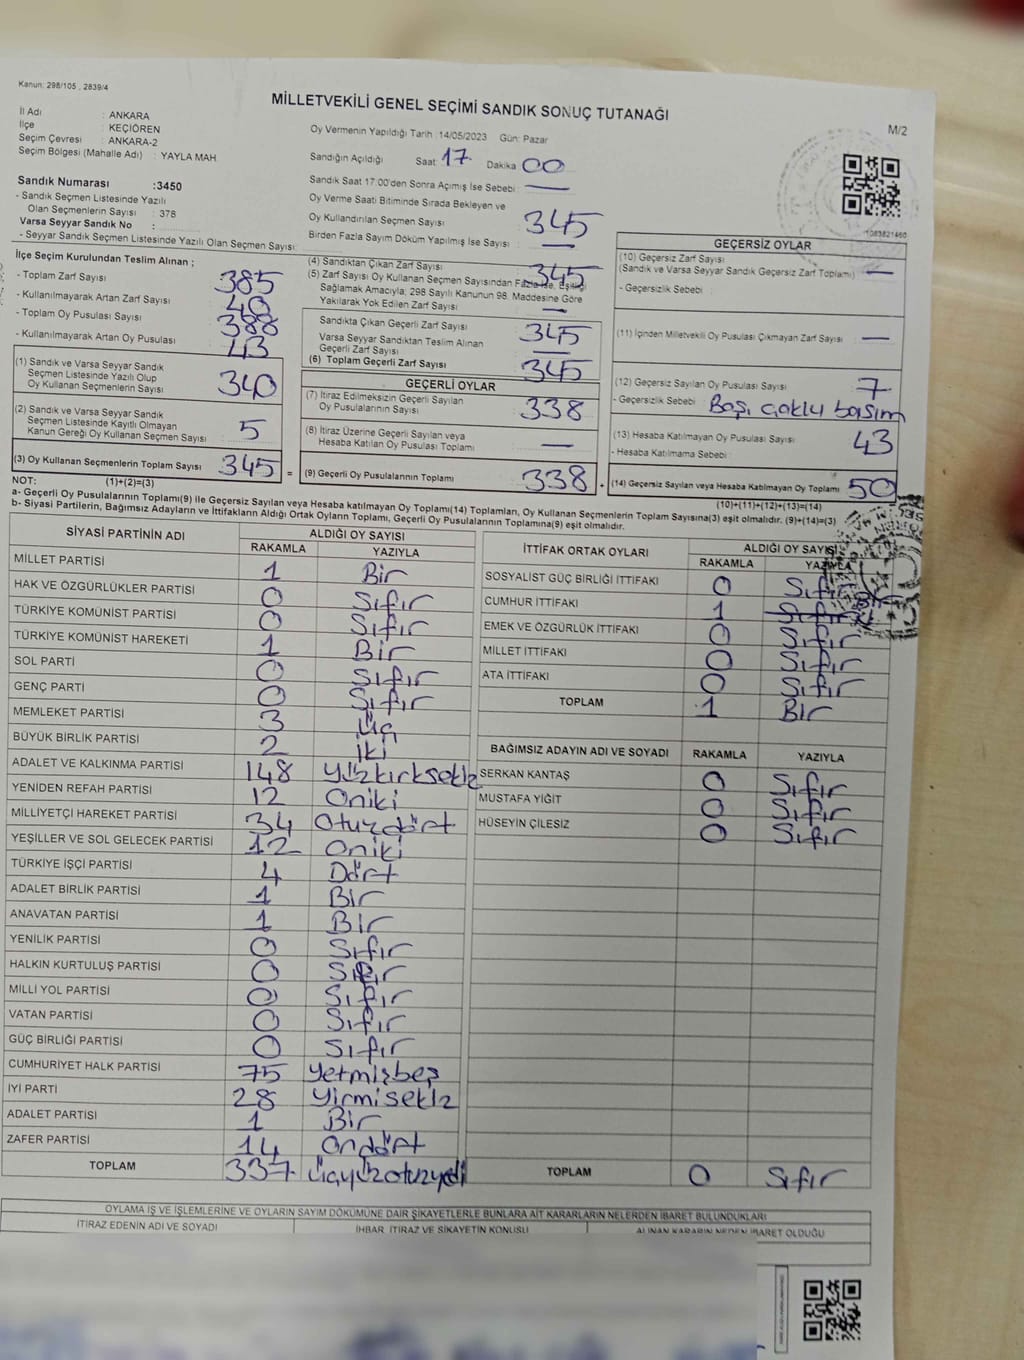 Kanun: 298/105 , 2839/4
MİLLETVEKİLİ GENEL SEÇİMİ SANDIK SONUÇ TUTANAĞI
M/2
İl Adı : ANKARA
İlçe : KEÇİÖREN
Seçim Çevresi : ANKARA-2
Seçim Bölgesi (Mahalle Adı) : YAYLA MAH
Sandık Numarası :3450
- Sandık Seçmen Listesinde Yazılı
Olan Seçmenlerin Sayısı : 378
Varsa Seyyar Sandık No :
- Seyyar Sandık Seçmen Listesinde Yazılı Olan Seçmen Sayısı
Oy Vermenin Yapıldığı Tarih :14/05/2023 Gün: Pazar
Sandığın Açıldığı Saat 17 Dakika 00
Sandık Saat 17:00'den Sonra Açımış İse Sebebi —
Oy Verme Saati Bitiminde Sırada Bekleyen ve
Oy Kullandırılan Seçmen Sayısı 345
Birden Fazla Sayım Döküm Yapılmış İse Sayısı —
1083821460
İlçe Seçim Kurulundan Teslim Alınan ;
- Toplam Zarf Sayısı 385
- Kullanılmayarak Artan Zarf Sayısı 40
- Toplam Oy Pusulası Sayısı 388
- Kullanılmayarak Artan Oy Pusulası 43
(1) Sandık ve Varsa Seyyar Sandık
Seçmen Listesinde Yazılı Olup
Oy Kullanan Seçmenlerin Sayısı 340
(2) Sandık ve Varsa Seyyar Sandık
Seçmen Listesinde Kayıtlı Olmayan
Kanun Gereği Oy Kullanan Seçmen Sayısı 5
(3) Oy Kullanan Seçmenlerin Toplam Sayısı 345 =
(4) Sandıktan Çıkan Zarf Sayısı 345
(5) Zarf Sayısı Oy Kullanan Seçmen Sayısından Fazla ise, Eşitliği
Sağlamak Amacıyla; 298 Sayılı Kanunun 98. Maddesine Göre
Yakılarak Yok Edilen Zarf Sayısı —
Sandıkta Çıkan Geçerli Zarf Sayısı 345
Varsa Seyyar Sandıktan Teslim Alınan
Geçerli Zarf Sayısı —
(6) Toplam Geçerli Zarf Sayısı 345
GEÇERLİ OYLAR
(7) İtiraz Edilmeksizin Geçerli Sayılan
Oy Pusulalarının Sayısı 338
(8) İtiraz Üzerine Geçerli Sayılan veya
Hesaba Katılan Oy Pusulası Toplamı —
(9) Geçerli Oy Pusulalarının Toplamı 338 +
GEÇERSİZ OYLAR
(10) Geçersiz Zarf Sayısı
(Sandık ve Varsa Seyyar Sandık Geçersiz Zarf Toplamı) —
- Geçersizlik Sebebi
(11) İçinden Milletvekili Oy Pusulası Çıkmayan Zarf Sayısı —
(12) Geçersiz Sayılan Oy Pusulası Sayısı 7
- Geçersizlik Sebebi Başı çoklu basım
(13) Hesaba Katılmayan Oy Pusulası Sayısı 43
- Hesaba Katılmama Sebebi
(14) Geçersiz Sayılan veya Hesaba Katılmayan Oy Toplamı 50
NOT: (1)+(2)=(3) (10)+(11)+(12)+(13)=(14)
a- Geçerli Oy Pusulalarının Toplamı(9) ile Geçersiz Sayılan veya Hesaba katılmayan Oy Toplamı(14) Toplamları, Oy Kullanan Seçmenlerin Toplam Sayısına(3) eşit olmalıdır. (9)+(14)=(3)
b- Siyasi Partilerin, Bağımsız Adayların ve İttifakların Aldığı Ortak Oyların Toplamı, Geçerli Oy Pusulalarının Toplamına(9) eşit olmalıdır.
SİYASİ PARTİNİN ADI ALDIĞI OY SAYISI
RAKAMLA YAZIYLA
MİLLET PARTİSİ 1 Bir
HAK VE ÖZGÜRLÜKLER PARTİSİ 0 Sıfır
TÜRKİYE KOMÜNİST PARTİSİ 0 Sıfır
TÜRKİYE KOMÜNİST HAREKETİ 1 Bir
SOL PARTİ 0 Sıfır
GENÇ PARTİ 0 Sıfır
MEMLEKET PARTİSİ 3 Üç
BÜYÜK BİRLİK PARTİSİ 2 İki
ADALET VE KALKINMA PARTİSİ 148 Yüzkırksekiz
YENİDEN REFAH PARTİSİ 12 Oniki
MİLLİYETÇİ HAREKET PARTİSİ 34 Otuzdört
YEŞİLLER VE SOL GELECEK PARTİSİ 12 Oniki
TÜRKİYE İŞÇİ PARTİSİ 4 Dört
ADALET BİRLİK PARTİSİ 1 Bir
ANAVATAN PARTİSİ 1 Bir
YENİLİK PARTİSİ 0 Sıfır
HALKIN KURTULUŞ PARTİSİ 0 Sıfır
MİLLİ YOL PARTİSİ 0 Sıfır
VATAN PARTİSİ 0 Sıfır
GÜÇ BİRLİĞİ PARTİSİ 0 Sıfır
CUMHURİYET HALK PARTİSİ 75 Yetmişbeş
İYİ PARTİ 28 Yirmisekiz
ADALET PARTİSİ 1 Bir
ZAFER PARTİSİ 14 Ondört
TOPLAM 337 Üçyüzotuzyedi
İTTİFAK ORTAK OYLARI ALDIĞI OY SAYISI
RAKAMLA YAZIYLA
SOSYALİST GÜÇ BİRLİĞİ İTTİFAKI 0 Sıfır
CUMHUR İTTİFAKI 1 Sıfır Bir
EMEK VE ÖZGÜRLÜK İTTİFAKI 0 Sıfır
MİLLET İTTİFAKI 0 Sıfır
ATA İTTİFAKI 0 Sıfır
TOPLAM 1 Bir
BAĞIMSIZ ADAYIN ADI VE SOYADI RAKAMLA YAZIYLA
SERKAN KANTAŞ 0 Sıfır
MUSTAFA YİĞİT 0 Sıfır
HÜSEYİN ÇİLESİZ 0 Sıfır
TOPLAM 0 Sıfır
OYLAMA İŞ VE İŞLEMLERİNE VE OYLARIN SAYIM DÖKÜMÜNE DAİR ŞİKAYETLERLE BUNLARA AİT KARARLARIN NELERDEN İBARET BULUNDUKLARI
İTİRAZ EDENİN ADI VE SOYADI İHBAR, İTİRAZ VE ŞİKAYETİN KONUSU ALINAN KARARIN NEDEN İBARET OLDUĞU